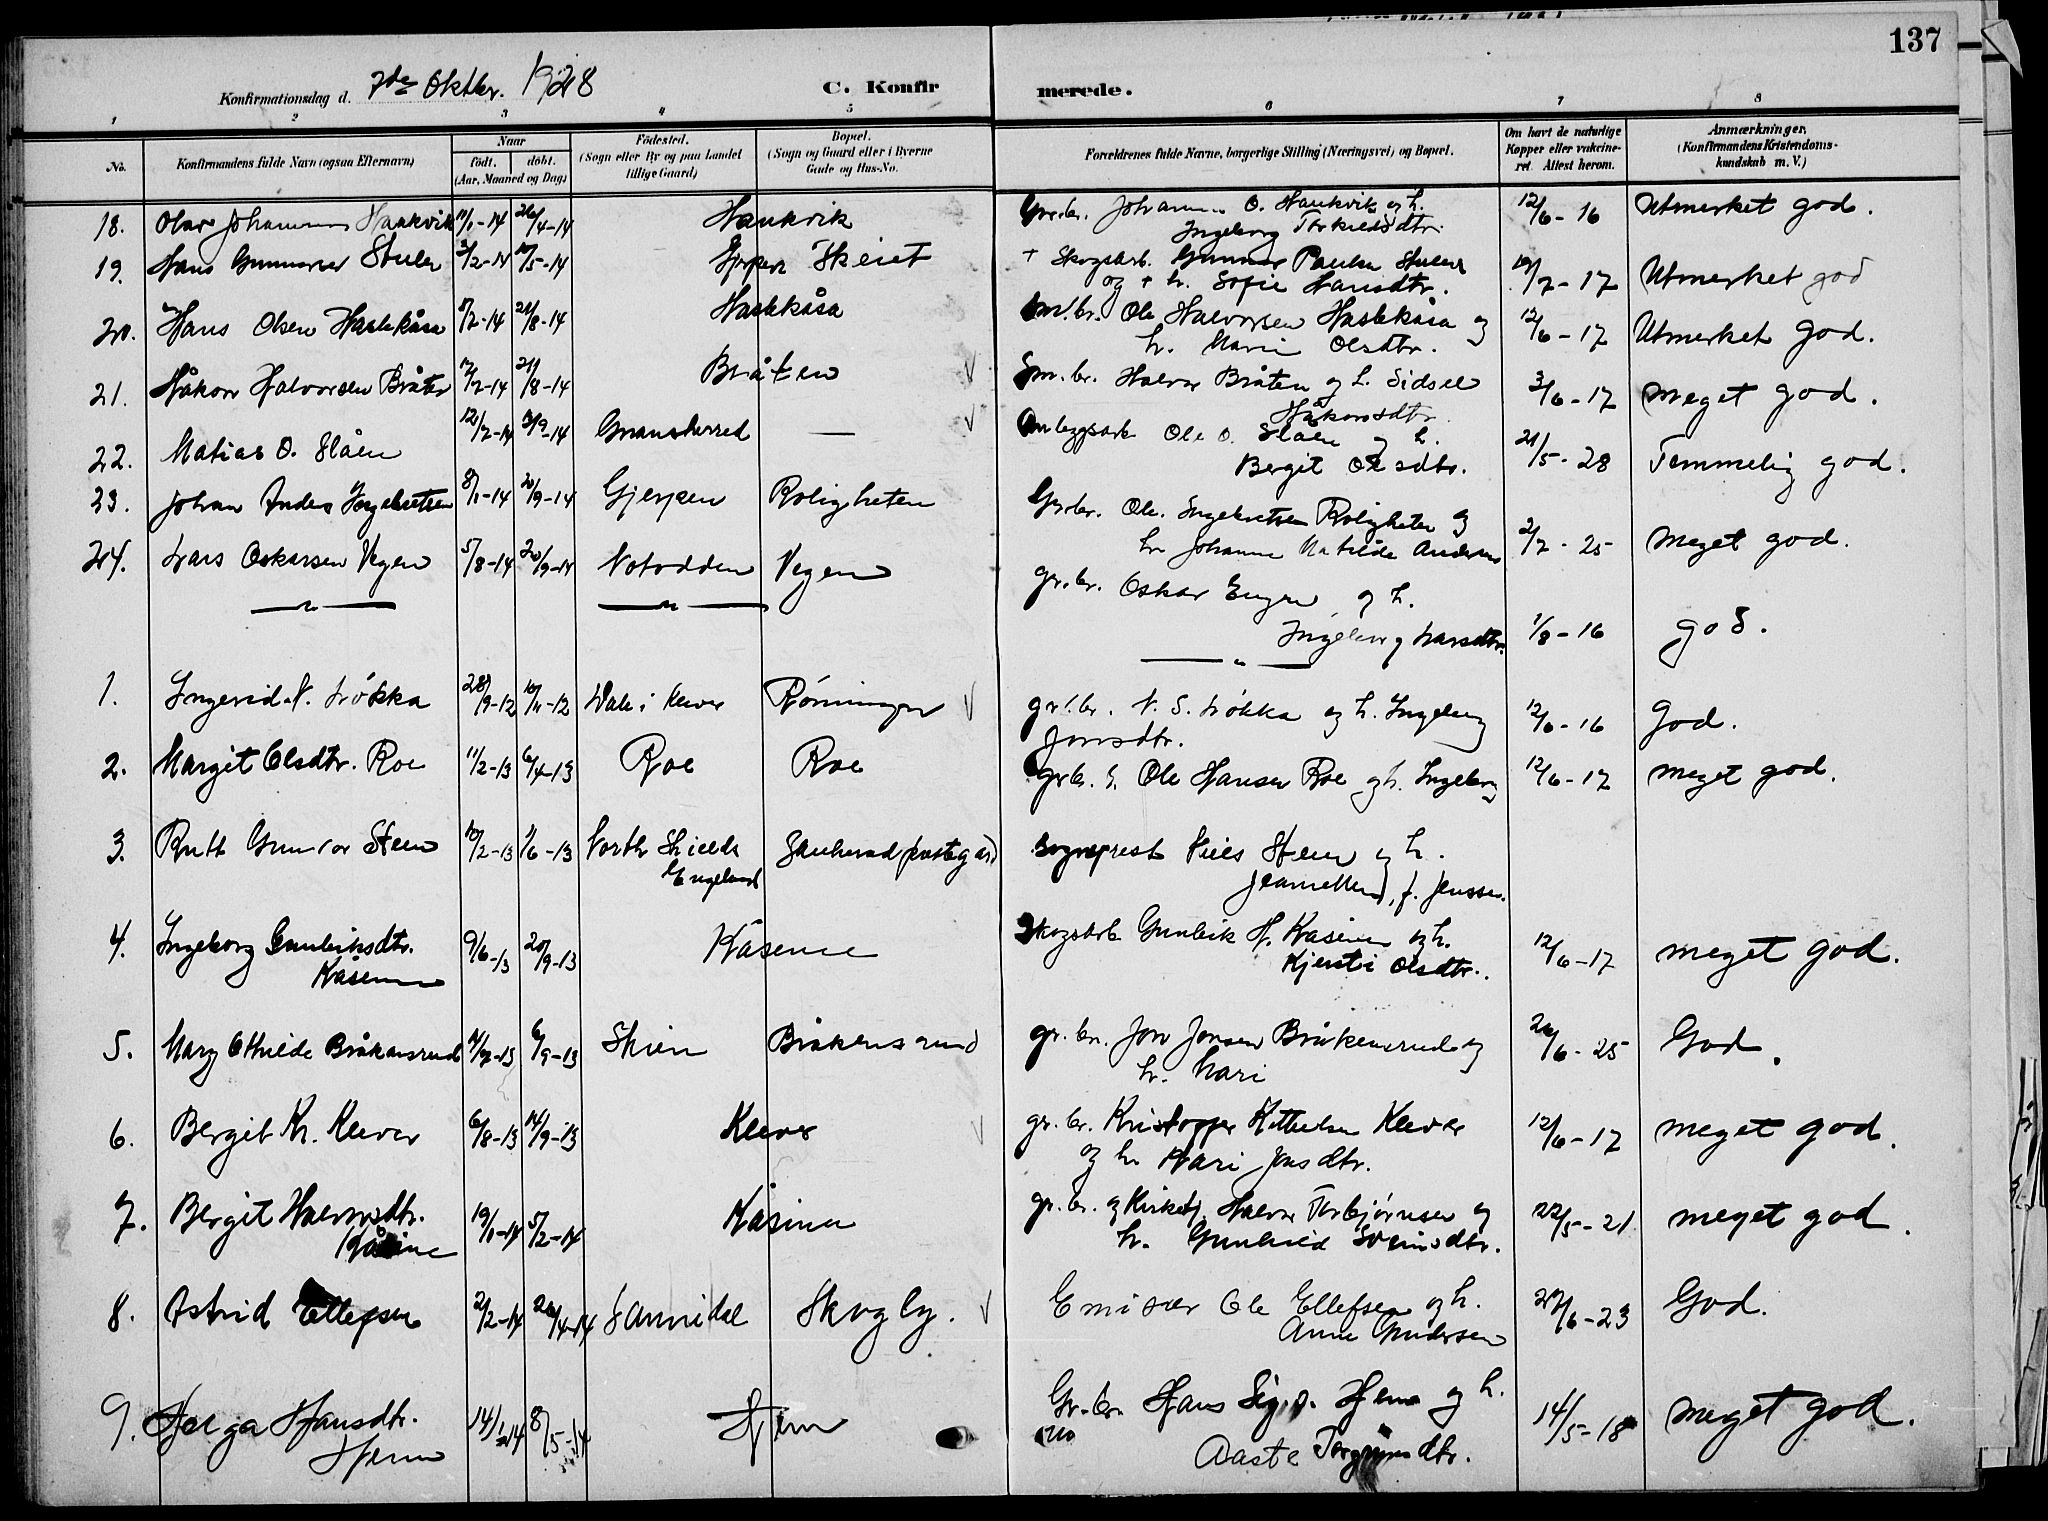 137
Konfirmationsdag d. 7de Oktbr. 1928 C. Konfirmerede.
1 2 3 4 5 6 7 8
No. Konfirmandens fulde Navn (ogsaa Efternavn) Naar født. døbt. (Aar, Maaned og Dag) Fødested. (Sogn eller By og paa Landet tillige Gaard) Bopæl. (Sogn og Gaard eller i Byerne Gade og Hus-No. Forældrenes fulde Navne, borgerlige Stilling (Næringsvei) og Bopæl. Om havt de naturlige Kopper eller vakcineret. Attest herom. Anmærkninger. (Konfirmandens Kristendomskundskab m. V.)
18. Olav Johannes Haukvik 11/1-14 26/4-14 Haukvik Johannes O. Haukvik og h. 12/6-16 Utmerket god.
Ingeborg Torkildsdtr.
19. Hans Gunnarsen Stulen /2-14 /5-14 Gjerpen Skeiet + Skogsarb. Gunnar Paulsen Stulen /7-17 Utmerket god
og + h. Sofie Hansdtr.
20. Hans Olsen Haslekåsa /2-14 /8-14 Haslekåsa Ole Halvorsen Haslekåsa og 12/6-17 Utmerket god.
h. Marie Olsdtr.
21. Håkon Halvorsen Bråten 14 /8-14 Bråten V Sm.br. Halvor Bråten og h. Sidsel 3/6-17 meget god.
Håkonsdtr.
22. Matias O. Slåen 12/7-14 /9-14 Gransherred — V Anleggsarb. Ole O. Slåen og h. 21/5-28 Temmelig god.
Bergit Olsdtr.
23. Johan Anders Ingebretsen 8/1-14 20/9-14 Gjerpen Roligheten Ole Ingebretsen Roligheten og 2/7-25 meget god.
h. Johanne Matilde Andersen
24. Lars Oskarsen Vegen 5/8-14 20/9-14 Notodden Vegen gr.br. Oskar og h.
Ingeborg Larsdtr. 1/8-16 god.
— " — — " — — " —
1. Ingerid N. Løkka 28/9-12 10/11-12 Dale i Klever Rønningen V gr.br. N. S. Løkka og h. Ingeborg 12/6-16 God.
Jonsdtr.
2. Margit Olsdtr. Roe 11/2-13 6/4-13 Roe Roe gr.br. Ole Hansen Roe og h. Ingeborg 12/6-17 meget god.
3. Ruth Gunvor Steen 10/2-13 1/6-13 North Shields Sauherad prestegård sogneprest Niels Steen og h.
England f. Jenssen.
4. Ingeborg Gunleiksdtr. 9/6-13 20/9-13 Kåsene Skogsarb. Gunleik H. Kasene og h. 12/6-17 meget god.
Kåsene Kjersti Olsdtr.
5. Mary Othilde Bråkensrud 13 6/9-13 Skien Bråkensrud gr.br. Jon Jonsen Bråkensrud og 26/6-25 God.
h. Mari
6. Bergit Kr. Klever 6/8-13 14/9-13 Klever V gr.br. Kristoffer Kittelsen Klever 12/6-17 meget god.
og h. Kari Jonsdtr.
7. Bergit Halvorsdtr. 19/1-14 5/2-14 Kåsine gr.br. og Kirketj. Halvor Torbjørnsen og 22/5-21 meget god.
Kåsine h. Gunhild Sveinsdtr.
8. Astrid Ellefsen 2/2-14 26/4-14 Sannidal Skogly. V Emisær Ole Ellefsen og h. 27/6-23 God.
Anne Gundersen
9. Helga Hansdtr. 14/1-14 8/5-14 Hjem Gr.br. Hans Sig.s. Hjem og h. 14/5-18 meget god.
Hjem Aaste Torgrimsdtr.